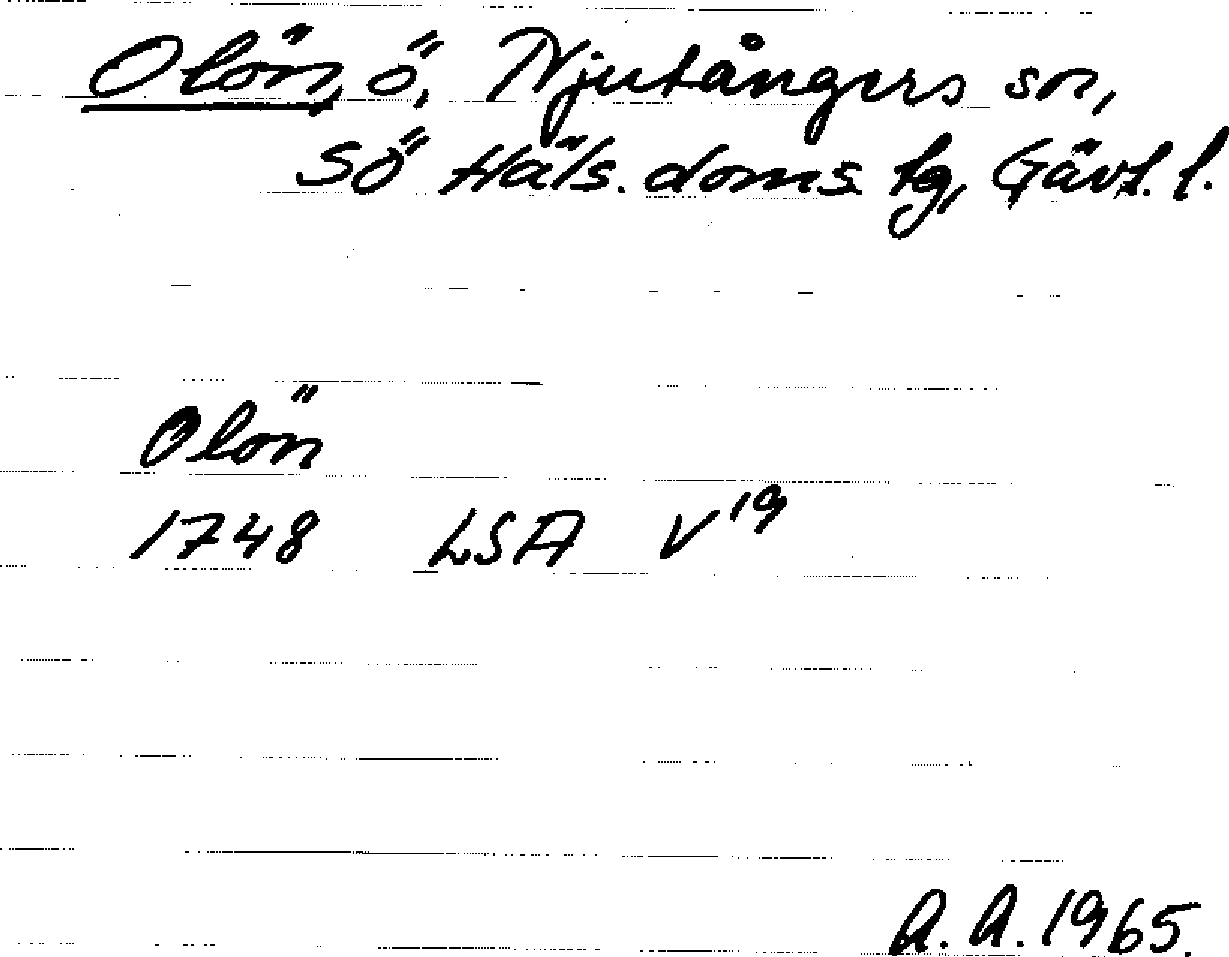 Olön, ö, Njutångers sn,
Sö Häls. doms. tg, Gävl. l.
Olön
1748 LSA V19
A. A. 1965.